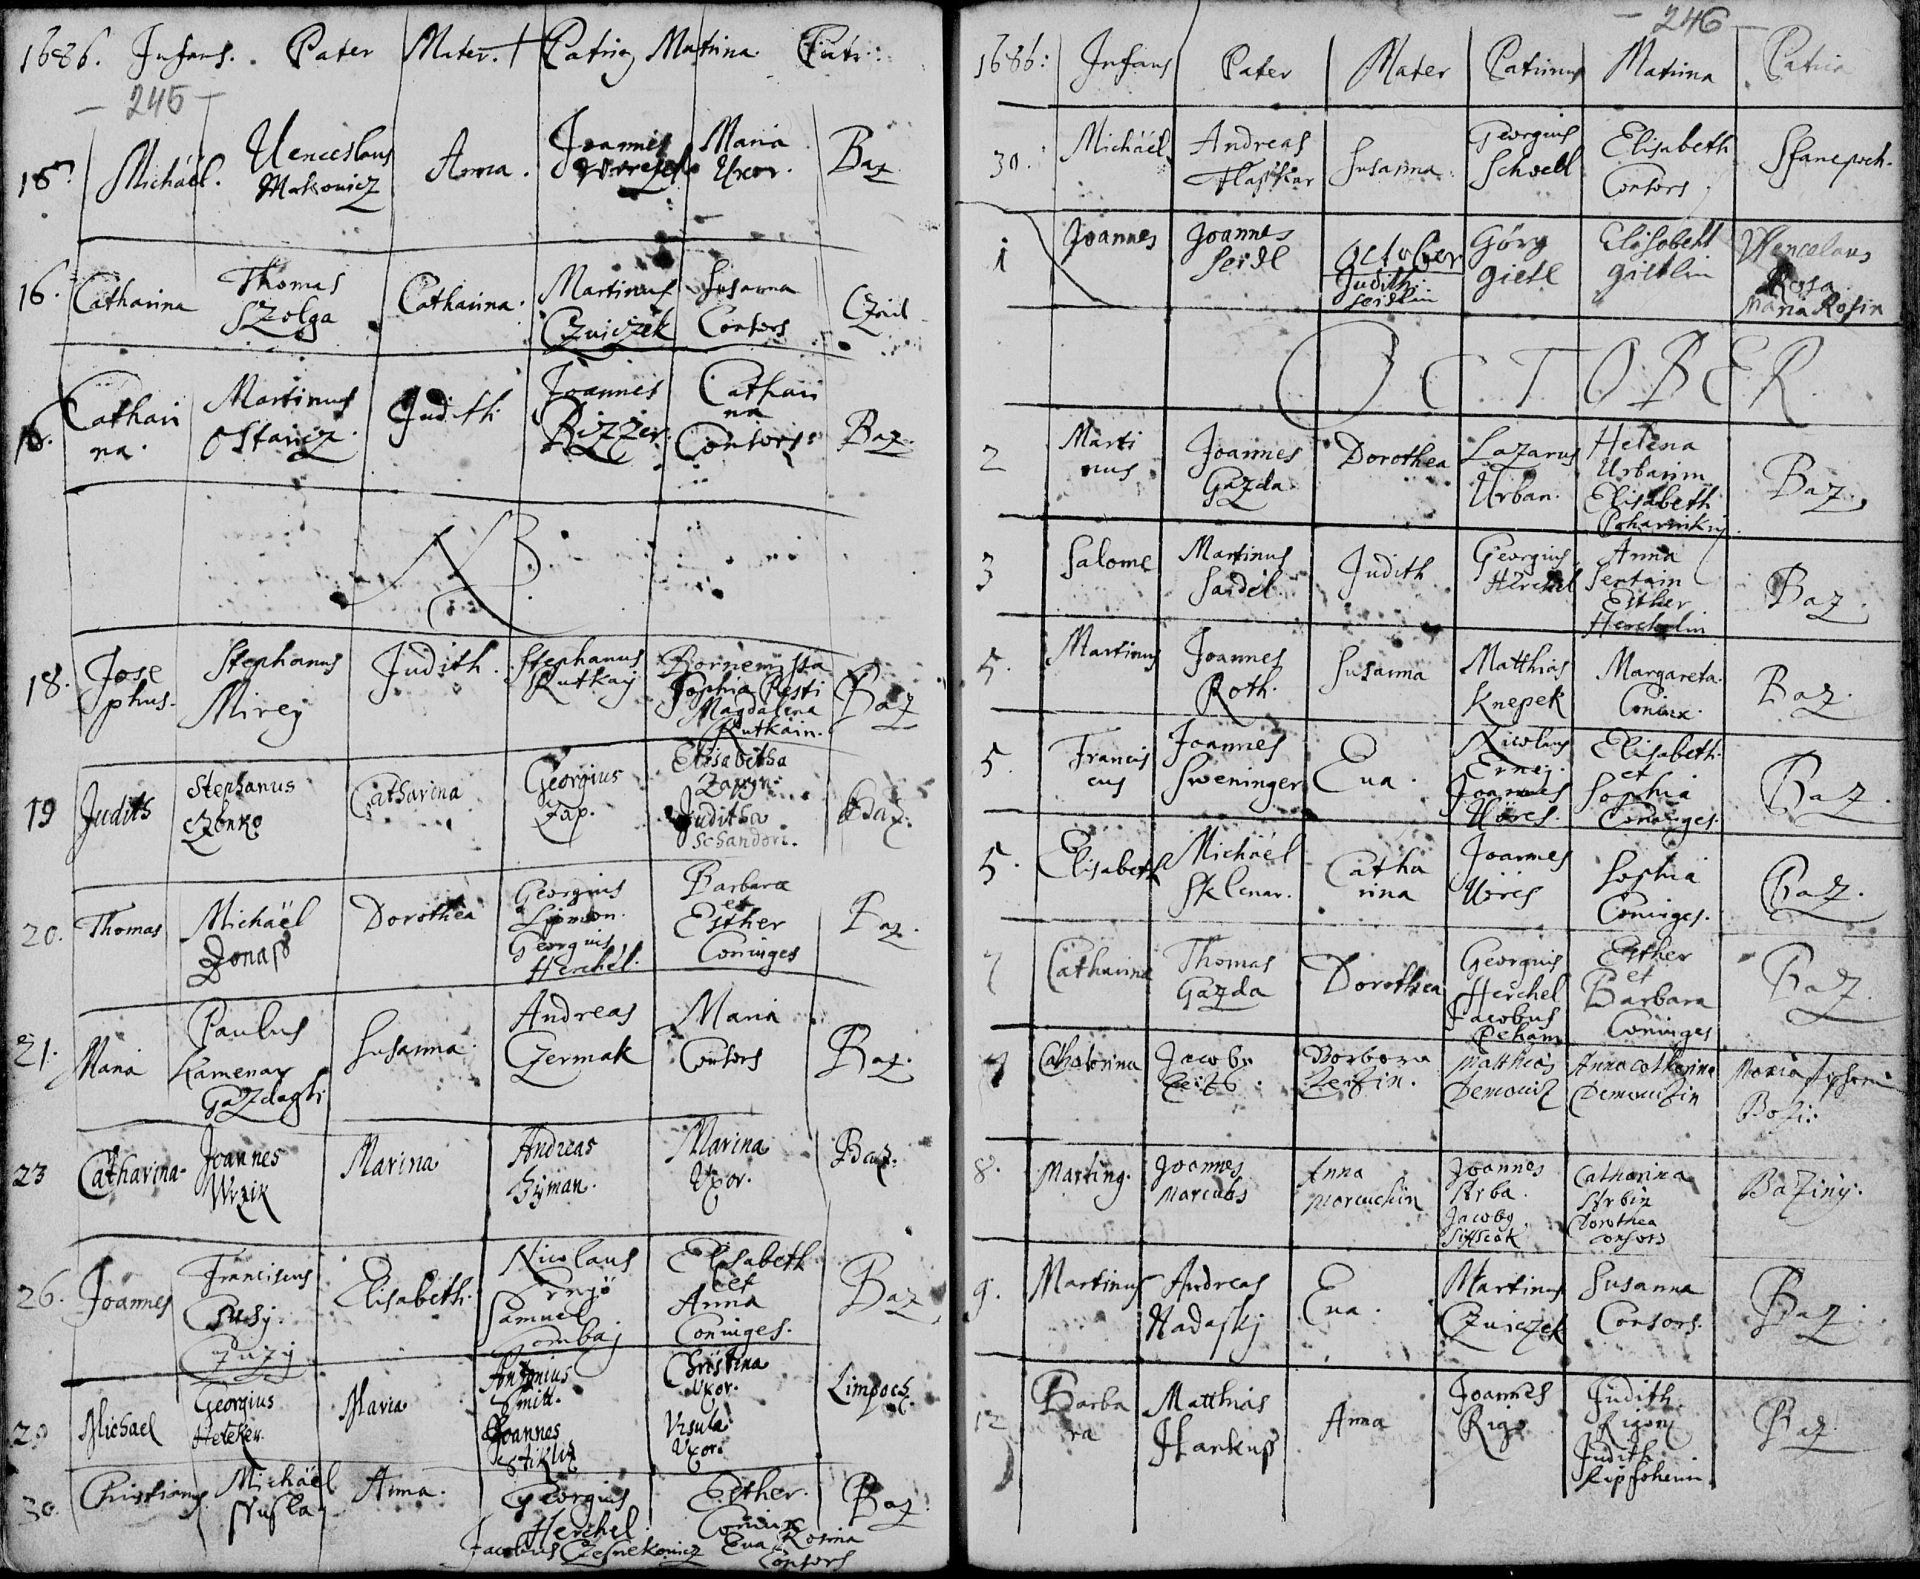 1686. Infans. Pater Mater. Patrinꝯ Matrina Patr:
- 245 -
15. Michäel. Venceslaus Makowicz Anna. Joannes Maria Uxor. Baz
16. Catharina Thomas Szolga Catharina. Martinus Czuiczek Susanna Consors
16. Cathari na. Martinus Ostaricz. Judith Joannes Rizzer. Cathari na Consors: Baz.
NB.
18. Jose phus. Stephanus Mirej Judith. Stephanus Rutkaij Bornemissa Sophia Pesti Magdalena Rutkain. Baz
19 Judith Stephanus Czonko Catharina Georgius Zap. Elisabetha Zappin Juditha Schandori. Baz.
20. Thomas Michäel Donass Dorothea Georgius Lipmon. Georgius Herchel. Barbara et Esther Coniuges Baz.
21. Maria Paulus Kamenar Gazdagh Susanna. Andreas Czermak Maria Consors Baz.
23 Catharina Joannes Wrzik Marina Andreas Siman. Marina Vxor. Baz.
26. Joannes Franciscus Csusj. Czuzij Elisabeth. Nicolaus Ernÿ Samuel Combaj Elisabeth et Anna Coniuges. Baz
29 Michael Georgius Heteker. Maria Antonius Smitt. Joannes Stikliz Christina Vxor. Vrsula Vxor. Limpach.
30. Christianꝯ Michäel Anna. Georgius Herchel. Jacobus Czesnekowicz Esther. Coniux Eva Rosina Consors Baz
- 246 -
1686: Infans Pater Mater Patrinus Matrina Patria
30. Michäel Andreas Susanna. Georgius Schoell Elisabeth Consors
1 Joannes Joannes Seidl October Judith Seidlin Görg Gietl Elisabeth Gietlin Wencelaus Rosa. Maria Rosin
OCTOBER.
2 Marti nus Joannes Gazda. Dorothea Lazarus Urban. Helena Urbanin Elisabeth Baz.
3 Salome Martinus Saidel. Judith Georgius Herchel Anna Esther Herchelin Baz.
5. Martinus Joannes Roth. Susanna Matthias Knepek Margareta. Coniux. Baz.
5. Francis cus Joannes Sweninger Eua. Nicolaus Ernej. Joannes Vöres. Elisabeth et Sophia Coniuges. Baz.
5. Elisabeth Michäel Sklenar. Catha rina Joannes Vöres Sophia Coniuges. Baz.
7 Catharina Thomas Gazda Dorothea Georgius Herchel Jacobus Peham Esther et Barbara Coniuges Baz.
7 Catharina Jacobꝯ Barbara Matthias Demouiz Anna Catharina Demouizin Maria
8. Martinꝯ. Joannes Marcubs Anna Marcuchin Joannes Srba. Jacobꝯ Catharina Srbin Dorothea Consors Baziny.
9. Martinus Andreas Hadaskj Eua. Martinus Czuiczek Susanna Consors. Baz.
12 Barba ra Matthias Harkuss Anna Joannes Rigo Judith Rigoni Judith Baz.